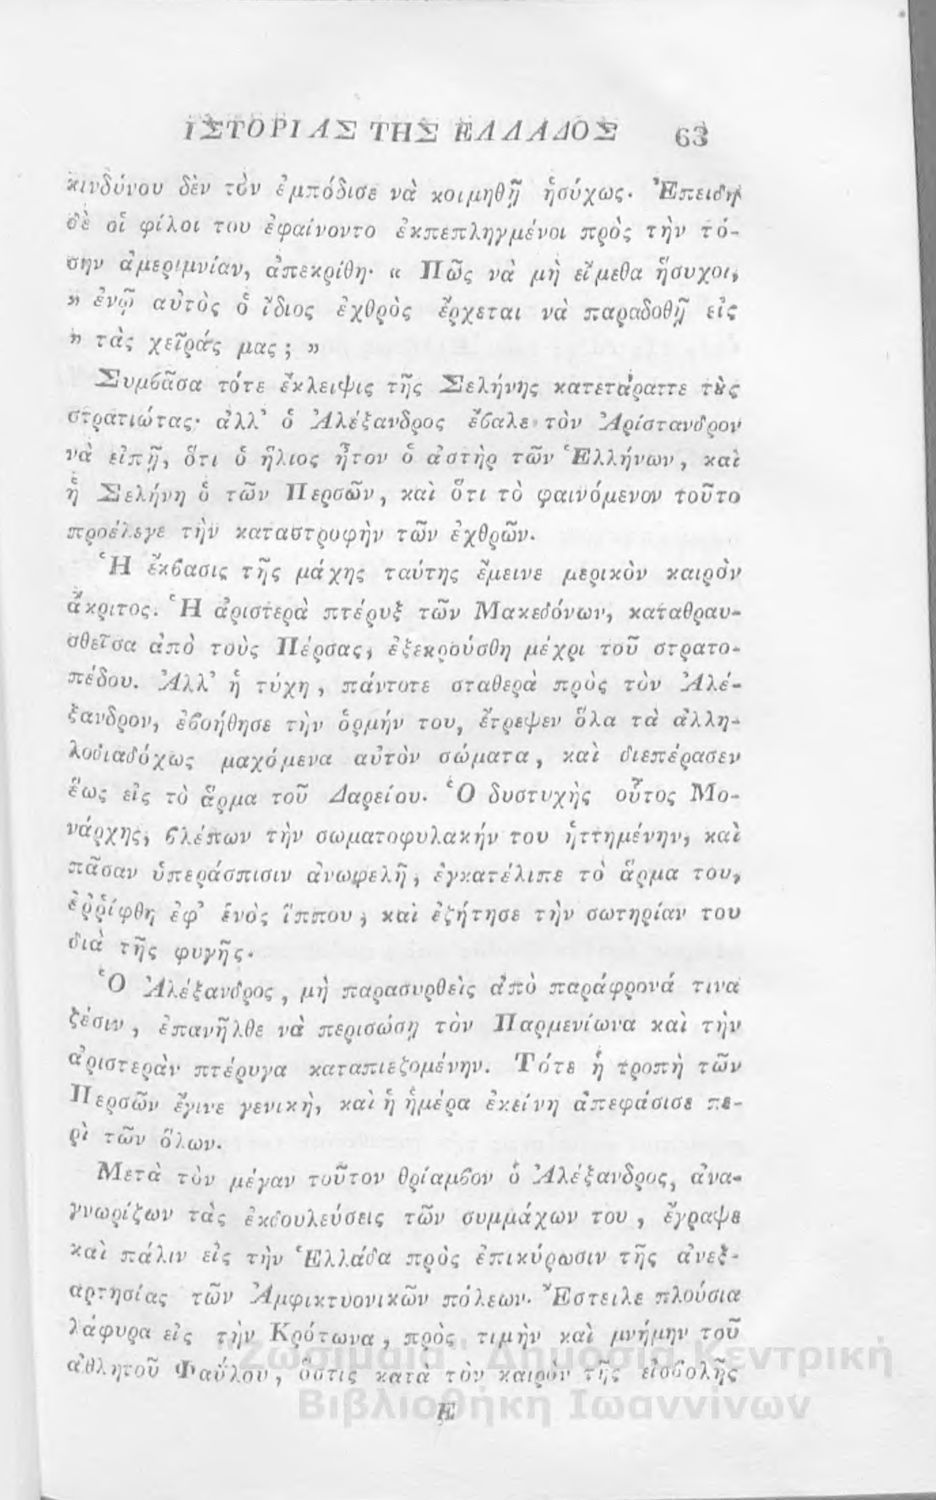 ΙΣΤΟΡΙΑΣ ΤΗΣ ΕΛΛΑΔΟΣ 63
κινδύνου δὲν τὸν ἐμπόδισε νὰ κοιμηθῇ ἡσύχως· Ἐπειδὴ
δὲ οἱ φίλοι του ἐφαίνοντο ἐκπεπληγμένοι πρὸς τὴν τό-
σην ἀμεριμνίαν, ἀπεκρίθη· « Πῶς νὰ μὴ εἴμεθα ἥσυχοι,
» ἐνῷ αὐτὸς ὁ ἴδιος ἐχθρὸς ἔρχεται νὰ παραδοθῇ εἰς
» τὰς χεῖράς μας ; »
Συμβᾶσα τότε ἔκλειψις τῆς Σελήνης κατετάραττε τοὺς
στρατιώτας· ἀλλ' ὁ Ἀλέξανδρος ἔβαλε τὸν Ἀρίστανδρον
νὰ εἰπῇ, ὅτι ὁ ἥλιος ἦτον ὁ ἀστὴρ τῶν Ἑλλήνων, καὶ
ἡ Σελήνη ὁ τῶν Περσῶν, καὶ ὅτι τὸ φαινόμενον τοῦτο
προέλεγε τὴν καταστροφὴν τῶν ἐχθρῶν.
Ἡ ἔκβασις τῆς μάχης ταύτης ἔμεινε μερικὸν καιρὸν
ἄκριτος. Ἡ ἀριστερὰ πτέρυξ τῶν Μακεδόνων, καταθραυ-
σθεῖσα ἀπὸ τοὺς Πέρσας, ἐξεκρούσθη μέχρι τοῦ στρατο-
πέδου. Ἀλλ' ἡ τύχη, πάντοτε σταθερὰ πρὸς τὸν Ἀλέ-
ξανδρον, ἐβοήθησε τὴν ὁρμήν του, ἔτρεψεν ὅλα τὰ ἀλλη-
λοδιαδόχως μαχόμενα αὐτὸν σώματα, καὶ διεπέρασεν
ἕως εἰς τὸ ἅρμα τοῦ Δαρείου. Ὁ δυστυχὴς οὗτος Μο-
νάρχης, βλέπων τὴν σωματοφυλακήν του ἡττημένην, καὶ
πᾶσαν ὑπεράσπισιν ἀνωφελῆ, ἐγκατέλιπε τὸ ἅρμα του,
ἐῤῥίφθη ἐφ' ἑνὸς ἵππου, καὶ ἐζήτησε τὴν σωτηρίαν του
διὰ τῆς φυγῆς.
Ὁ Ἀλέξανδρος, μὴ παρασυρθεὶς ἀπὸ παράφρονά τινα
ζέσιν, ἐπανῆλθε νὰ περισώσῃ τὸν Παρμενίωνα καὶ τὴν
ἀριστερὰν πτέρυγα καταπιεζομένην. Τότε ἡ τροπὴ τῶν
Περσῶν ἔγινε γενικὴ, καὶ ἡ ἡμέρα ἐκείνη ἀπεφάσισε πε-
ρὶ τῶν ὅλων.
Μετὰ τὸν μέγαν τοῦτον θρίαμβον ὁ Ἀλέξανδρος, ἀνα-
γνωρίζων τὰς ἐκδουλεύσεις τῶν συμμάχων του, ἔγραψε
καὶ πάλιν εἰς τὴν Ἑλλάδα πρὸς ἐπικύρωσιν τῆς ἀνεξ-
αρτησίας τῶν Ἀμφικτυονικῶν πόλεων. Ἔστειλε πλούσια
λάφυρα εἰς τὴν Κρότωνα, πρὸς τιμὴν καὶ μνήμην τοῦ
ἀθλητοῦ Φαΰλου, ὅστις κατὰ τὸν καιρὸν τῆς εἰσβολῆς
Ε
"Ζωσιμαία" Δημόσια Κεντρική
Βιβλιοθήκη Ιωαννίνων